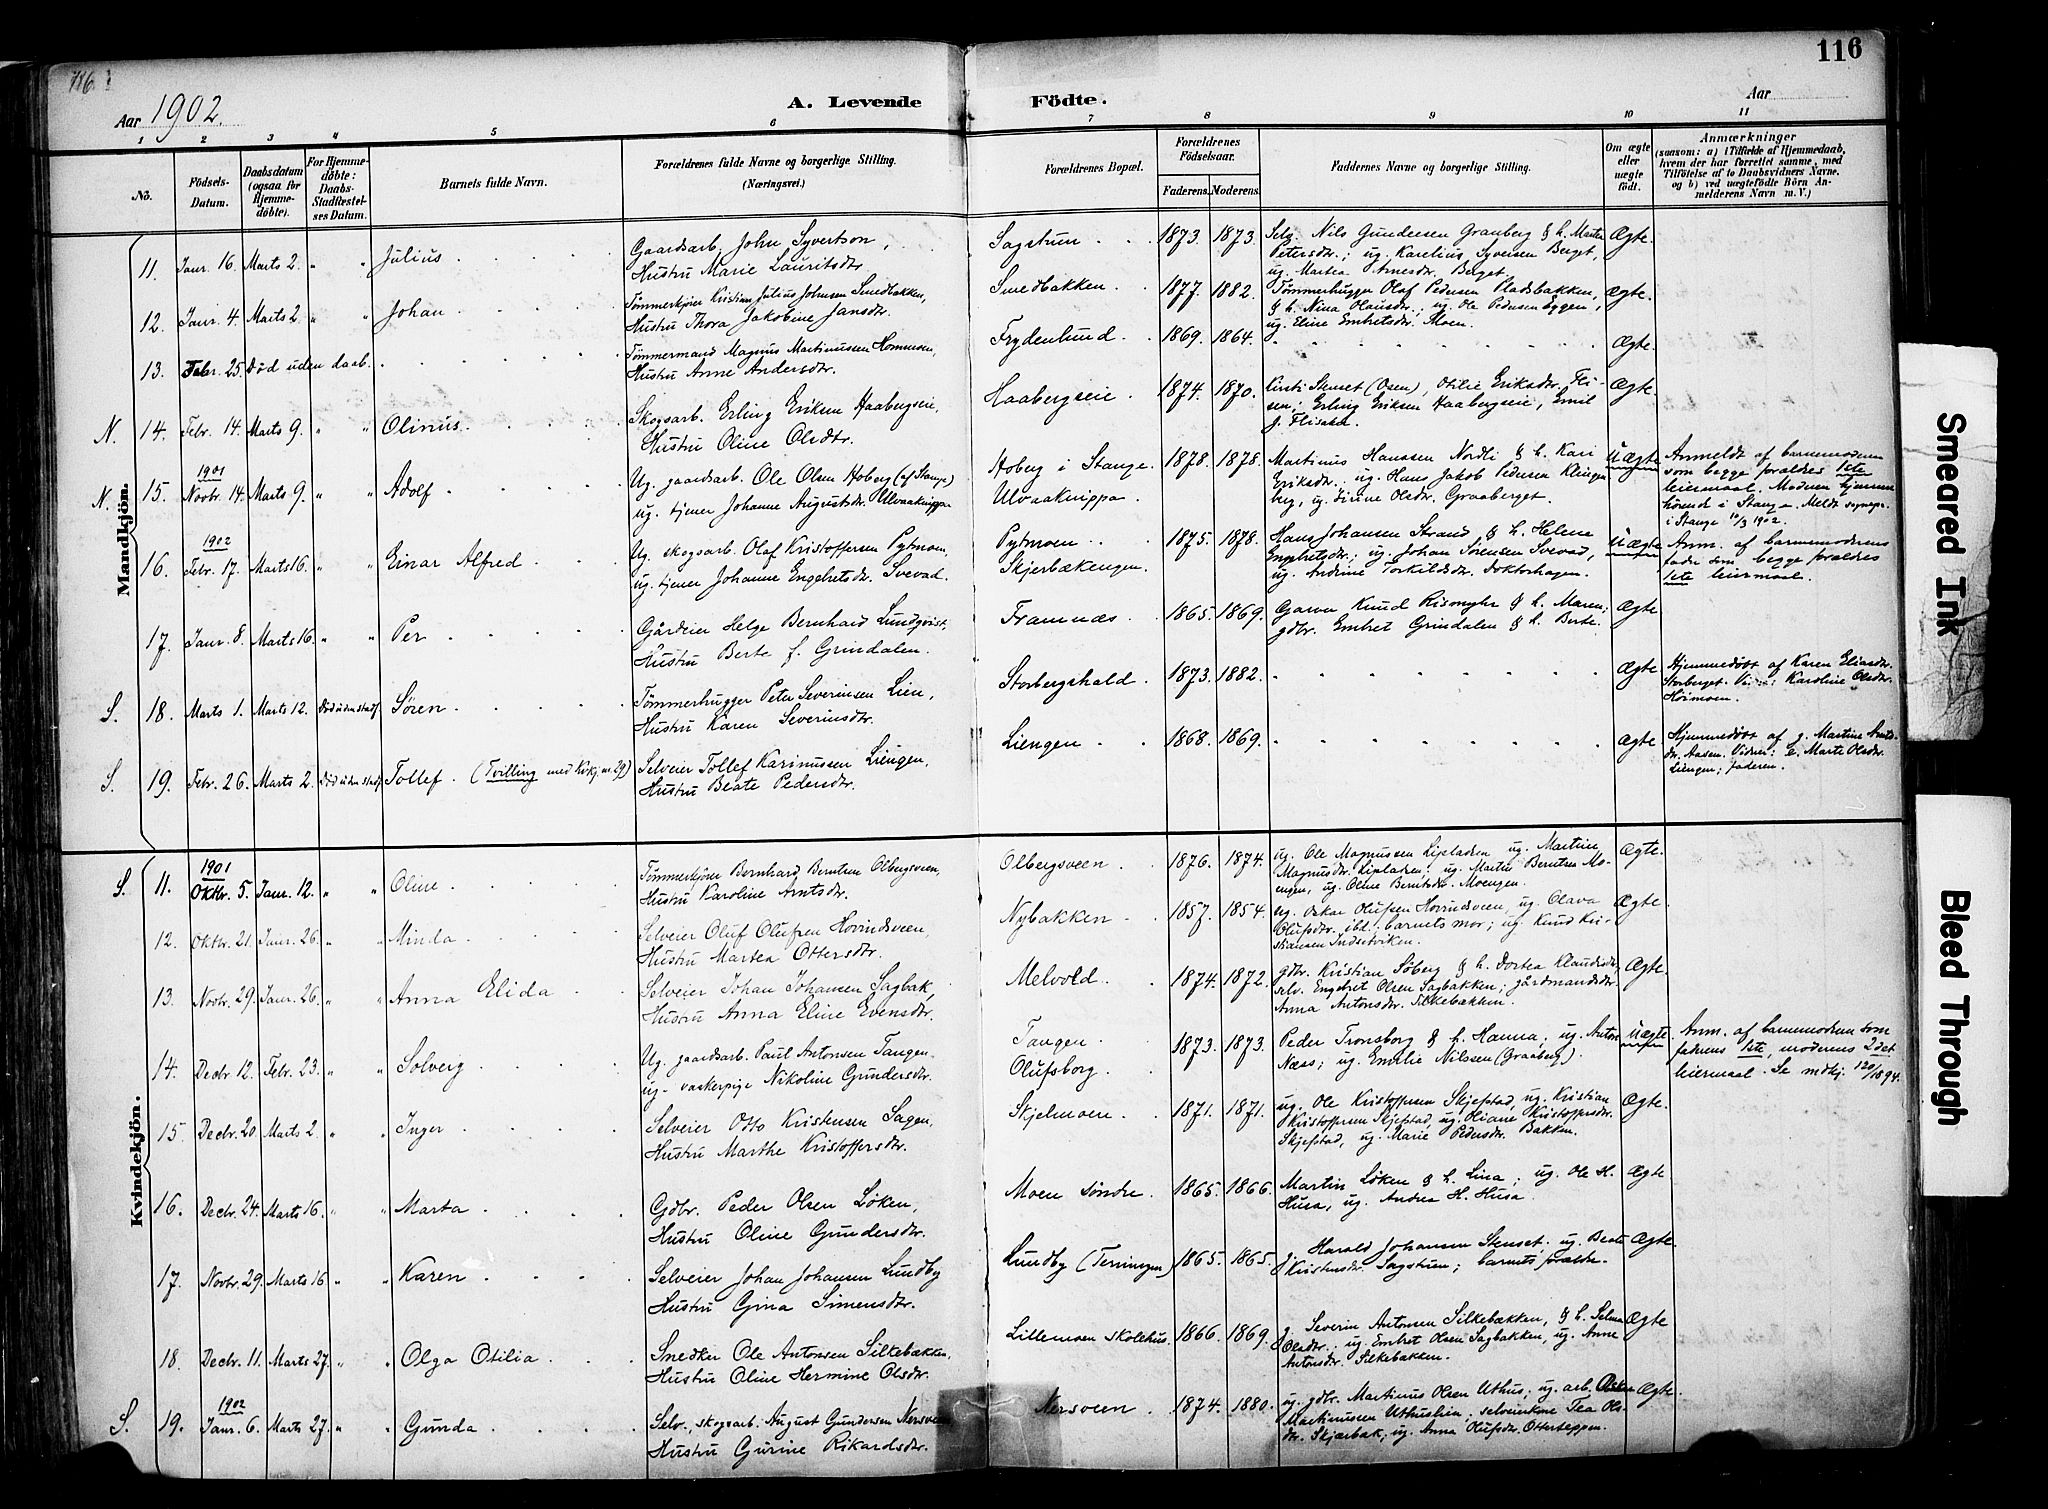 116
Aar 1902.
A. Levende Födte.
Aar
116
1 2 3 4 5 6 7 8 9 10 11
No.
Födsels-Datum.
Daabsdatum (ogsaa for Hjemmedöbte).
For Hjemmedöbte: Daabs-Stadfæstelses Datum.
Barnets fulde Navn.
Forældrenes fulde Navne og borgerlige Stilling. (Næringsvei.)
Forældrenes Bopæl.
Forældrenes Födselsaar.
Faderens. Moderens.
Faddernes Navne og borgerlige Stilling.
Om ægte eller uægte födt.
Anmærkninger
(saasom: a) i Tilfælde af Hjemmedaab, hvem der har forrettet samme, med Tilföielse af to Daabsvidners Navne, og b) ved uægtefödte Börn Anmelderens Navn m. V.)
Mandkjön.
11. Janr. 16. Marts 2. " " Julius
Gaardsarb. John Syvertson,
Hustru Marie Lauritsdtr.
Sagstuen 1873. 1873.
Selv. Nils Gundersen Granberg & h. Marten
Petersdtr.; ug. Karelius Syversen Berget,
ug. Martea Arnesdr. Berget.
Ægte.
12. Janr. 4. Marts 2. " " Johan
Tømmerkjører Kristian Julius Johnsen Smedbakken,
Hustru Thora Jakobine Jansdtr.
Smedbakken 1877. 1882.
Tømmerhugger Olaf Pedersen Pladsbakken,
& h. Nina Olausdtr.; ug. Ole Pedersen Eggen,
ug. Eline Embretsdtr. Moen.
Ægte.
13. Febr. 25. Død uden daab.
Tømmermand Magnus Martinussen Hommsen,
Hustru Anne Andersdtr.
Frydenlund 1869. 1864.
Ægte.
N. 14. Febr. 14. Marts 9. " " Olinus
Skogsarb. Erling Eriksen Haabergseie,
Hustru Oline Olsdtr.
Haabergseie 1874. 1870.
Kirsti Stenset (Osen), Otilie Eriksdtr. Fli-
sen; Erling Eriksen Haabergseie, Emil
J. Flisaker.
Ægte.
N. 15. 1901 Novbr. 14. Marts 9. " " Adolf
Ug. gaardsarb. Ole Olsen Hoberg (af Stange)
ug. tjener Johanne Augustsdtr. Ulvaaknippa
Hoberg i Stange.
Ulvaaknippa
1878. 1878.
Martinus Hanssen Nordli & h. Kari
Eriksdtr.; ug. Hans Jakob Pedersen Klingen
berg, ug. Sirine Olsdtr. Graaberget.
Uægte
Anmeldt af barnemoderen
som begge foraldres 1ste
leiermaal. Moderen hjemme
hørende i Stange. Meldt sognepr.
i Stange 10/3 1902.
16. 1902 Febr. 17. Marts 16. " " Einar Alfred
Ug. skogsarb. Olaf Kristoffersen Pytmoen,
ug. tjener Johanne Engebretsdtr. Svevad.
Pytmoen
Skjerbækengen.
1875. 1878.
Hans Johansen Strand & h. Helene
Engebretsdtr.; ug. Johan Sørensen Svevad,
ug. Andrine Torkildsdtr. Doktorhagen.
Uægte
Anm. af barnemoderens
fader som begge foraldres
1ste leiermaal.
17. Janr. 8. Marts 16. " " Per
Gårdeier Helge Bernhard Lundqvist,
Hustru Berte f. Grindalen.
Framnæs 1865. 1869.
Garver Knud Rismyhr & h. Maren;
gdbr. Embret Grindalen & h. Berte.
Ægte
S. 18. Marts 1. Marts 12. Død uden stadf. Søren
Tømmerhugger Peter Severinsen Lien,
Hustru Karen Severinsdtr.
Storbergshald 1873. 1882.
Ægte
Hjemmedøbt af Karen Eliasdtr.
Storberget. Vidne: Karoline Olsdtr.
Heimoen.
S. 19. Febr. 26. Marts 2. Død uden stadf. Tollef. (Tvilling med Kvkj. nr. 29)
Selveier Tollef Karinussen Liengen,
Hustru Beate Pedersdtr.
Liengen 1868. 1869.
Ægte
Hjemmedøbt af g. Martine Arnts-
dtr. Aasen. Vidner: E. Marte Olsdtr.
Liengen; faderen.
Kvindekjön.
S. 11. 1901 Oktbr. 5. Janr. 12. " " Oline
Tømmerkjører Bernhard Berntsen Olbergsveen,
Hustru Karoline Arntsdtr.
Olbergsveen 1876. 1874.
ug. Ole Magnussen Lipladsen, ug. Martine
Magnusdtr. Lipladsen; ug. Martin Berntsen Mo-
engen, ug. Oline Berntsdtr. Moengen.
Ægte.
12. Oktbr. 21. Janr. 26. " " Minda
Selveier Oluf Olufsen Hovindsveen,
Hustru Martea Ottersdtr.
Nybakken 1857. 1854.
ug. Oskar Olufsen Hovindsveen, ug. Olava
Olufsdtr. ibd. barnets mor; ug. Knud Kri-
stiansen Indsetviken.
Ægte.
13. Novbr. 29. Janr. 26. " " Anna Elida
Selveier Johan Johansen Sagbak,
Hustru Anna Eline Evensdtr.
Melvold 1874. 1872.
gdbr. Kristian Søberg & h. Dortea Klaudisdtr.,
selv. Engebret Olsen Sagbakken; gårdmandsdtr.
Anna Antonsdtr. Silkebakken.
Ægte.
14. Decbr. 12. Febr. 23. " " Solveig
Ug. gaardsarb. Paul Antonsen Tangen,
ug. vaskerpige Nikoline Gundersdtr.
Tangen
Olufsborg.
1873. 1873.
Peder Tronsborg & h. Hanna; ug. Anton
Næss; ug. Emilie Nilssen (Graaberg).
Uægte
Anm. af barnemoderen som
faderens 1ste, moderens 2det
leiermaal. Se mdkj. 120/1894.
15. Decbr. 20. Marts 2. " " Inger
Selveier Otto Kristensen Sagen,
Hustru Marthe Kristoffersdtr.
Skjelmoen 1871. 1871.
ug. Ole Kristoffersen Skjefstad, ug. Kristian
Kristoffersen Skjefstad, ug. Oliane Kristoffersdtr.
Skjefstad, ug. Marie Pedersdtr. Bakken.
Ægte.
16. Decbr. 24. Marts 16. " " Marta
Gdbr. Peder Olsen Løken,
Hustru Oline Gundersdtr.
Moen søndre 1865. 1866.
Martin Løken & h. Lina; ug. Ole H.
Husa, ug. Andrea H. Husa.
Ægte
17. Novbr. 29. Marts 16. " " Karen
Selveier Johan Johansen Lundby
Hustru Gina Simensdtr.
Lundby (Terningen) 1865. 1865.
g. Harald Johansen Stenset. ug. Beate
Kristensdtr. Sagstuen; barnets foraldre.
Ægte.
18. Decbr. 11. Marts 27. " " Olga Otilia
Snedker Ole Antonsen Silkebækken,
Hustru Oline Hermine Olsdtr.
Lillemoen skolehus. 1866. 1869.
g. Severin Antonsen Silkebækken, & h. Selma
Olsdtr.; ug. Embret Olsen Sagbakken, ug. Anne
Antonsdtr. Silkebækken.
Ægte
S. 19. 1902 Janr. 6. Marts 27. " " Gunda
Selv., skogsarb. August Gundersen Nersveen
Hustru Gurine Rikardsdtr.
Nersveen 1874. 1880.
ug. gdbr. Martinus Olsen Uthus; ug. arb. Oskar
Martinussen Uthuslien; selveierkone Tea Ols-
dtr. Skjærbak; ug. Anna Olufsdtr. Otterteppen.
Ægte.
Smeared Ink
Bleed Through